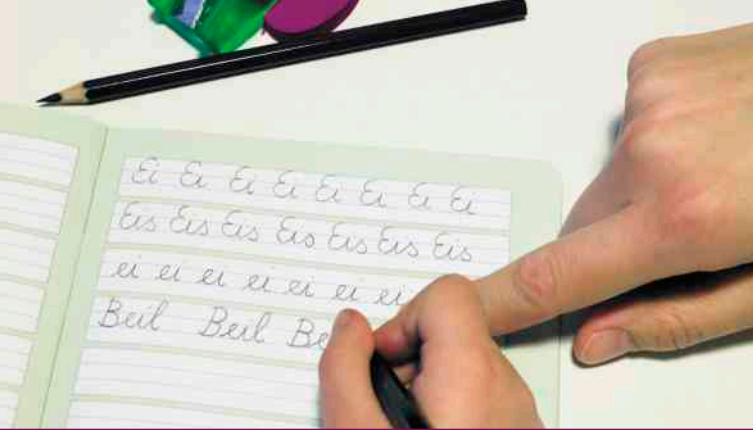 Ei Ei Ei Ei Ei Ei Ei Ei
Eis Eis Eis Eis Eis Eis Eis
ei ei ei ei ei ei ei
Beil Beil Be